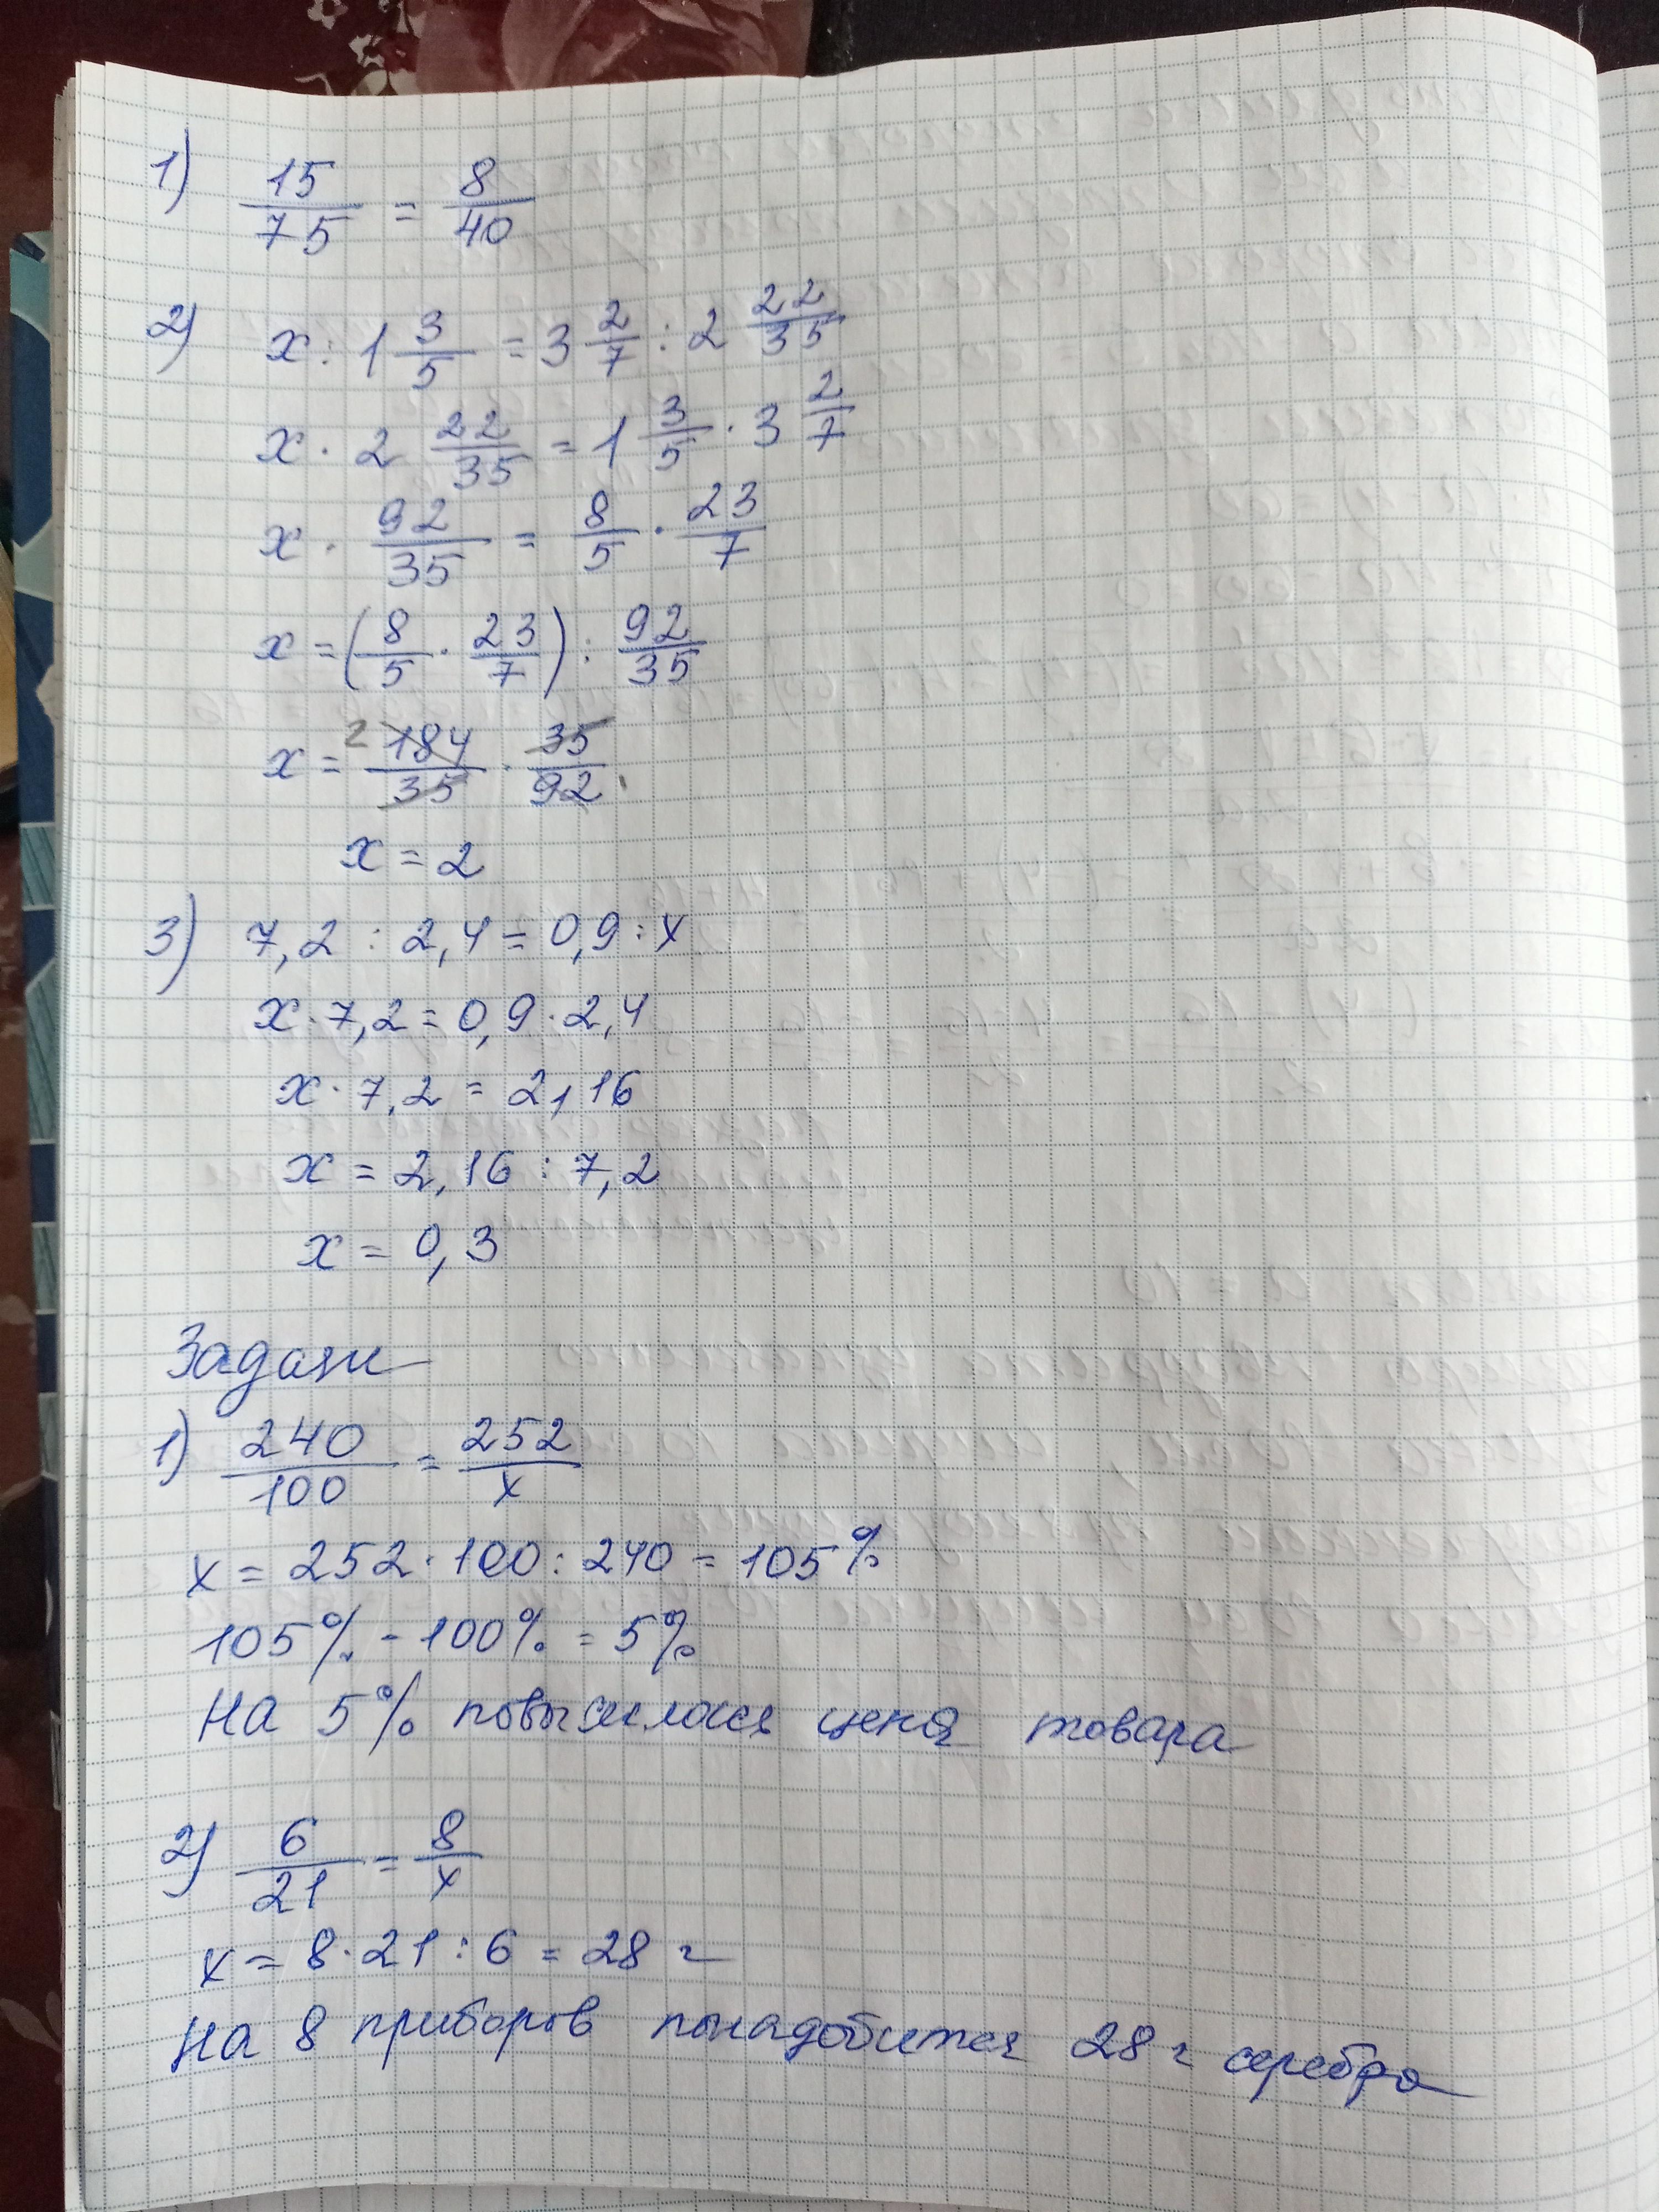 1) 15/75 = 8/40
2) x : 1 3/5 = 3 2/7 : 2 22/35
x · 2 22/35 = 1 3/5 · 3 2/7
x · 92/35 = 8/5 · 23/7
x = (8/5 · 23/7) : 92/35
x = 2 184/35 · 35/92 1
x = 2
3) 7,2 : 2,4 = 0,9 : x
x · 7,2 = 0,9 · 2,4
x · 7,2 = 2,16
x = 2,16 : 7,2
x = 0,3
Задачи
1) 240/100 = 252/x
x = 252 · 100 : 240 = 105%
105% - 100% = 5%
На 5% повысилася цена товара
2) 6/21 = 8/x
x = 8 · 21 : 6 = 28 г
На 8 приборов понадобится 28 г серебра